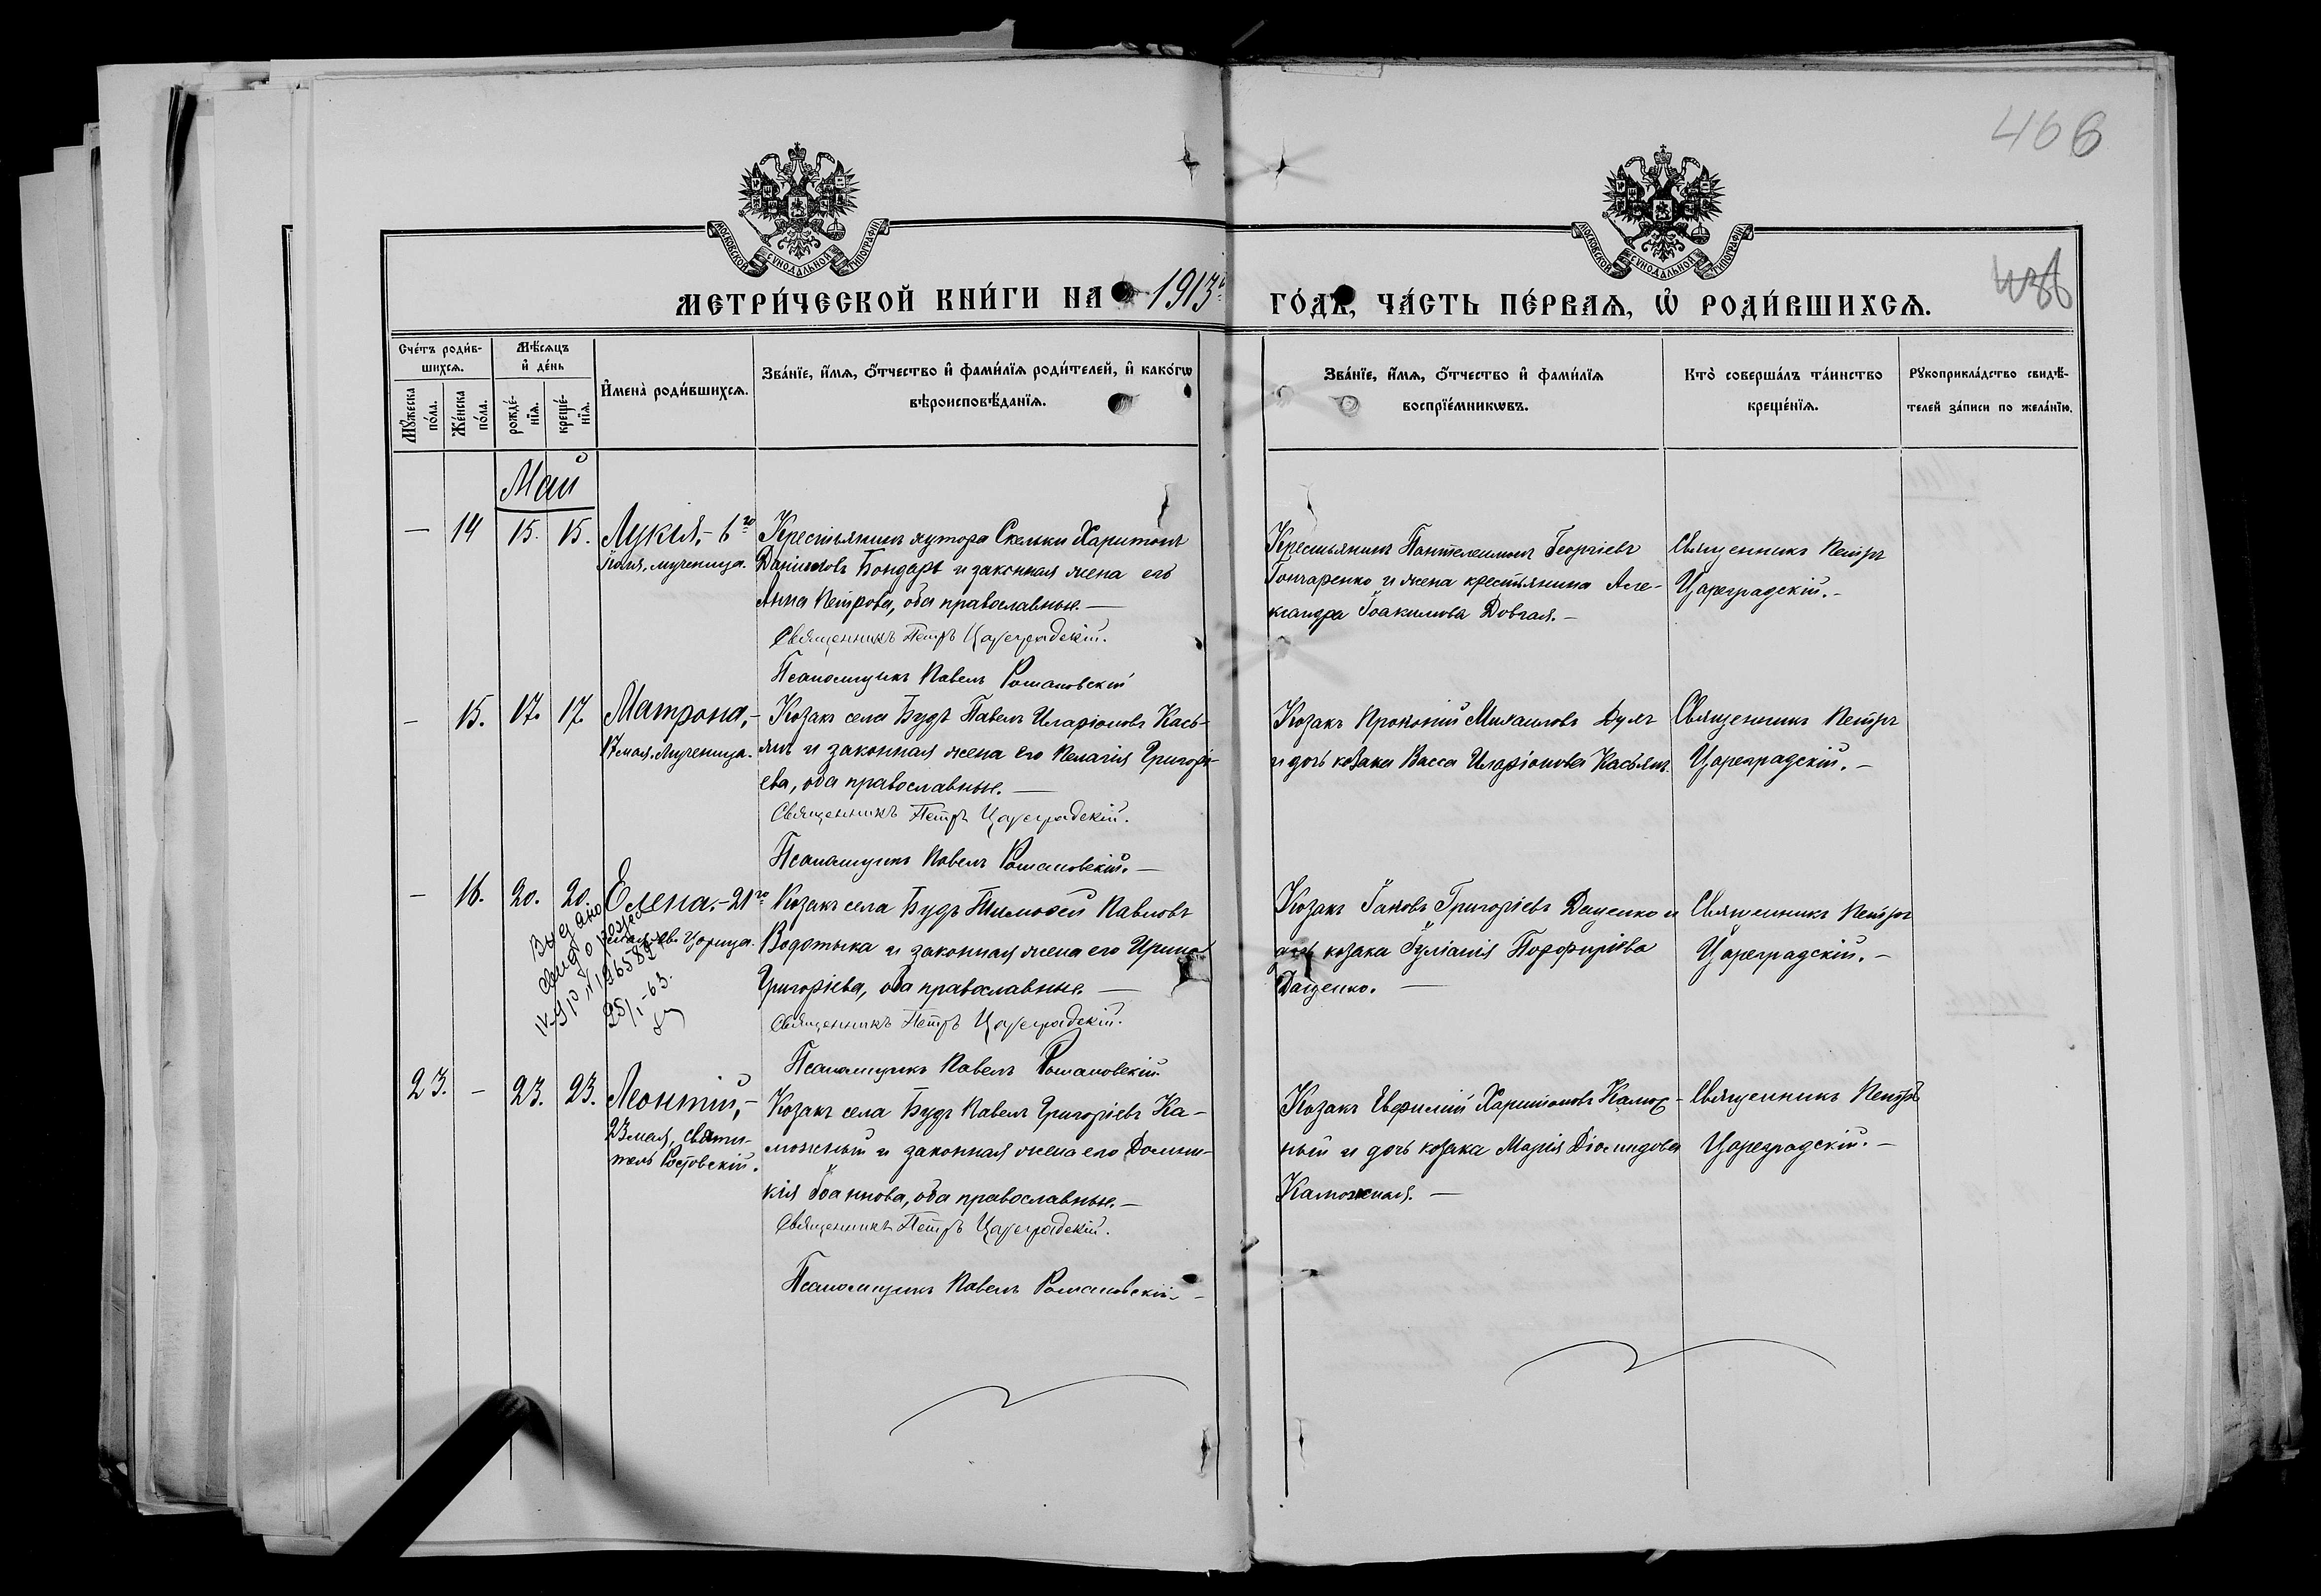 466
МОСКОВСКОЙ СУНОДАЛЬНОЙ ТИПОГРАФІИ
МОСКОВСКОЙ СУНОДАЛЬНОЙ ТИПОГРАФІИ
МЕТРИ́ЧЕСКОЙ КНИ́ГИ НА 1913й
ГО́ДЪ, ЧА́СТЬ ПЕ́РВАѦ, Ѡ҆ РОДИ́ВШИХСѦ.
Сче́тъ роди́в-
шихсѧ.
Мꙋ́жеска по́ла.
Же́нска по́ла.
Мѣ́сѧцъ и҆ де́нь
рожде́-нїѧ.
креще́-нїѧ.
И҆мена̀ роди́вшихсѧ.
Зва́нїе, и҆́мѧ, ѻ҆́тчество и҆ фамѝлїѧ роди́телей, и҆ како́гѡ
вѣроисповѣ́данїѧ.
Зва́нїе, и҆́мѧ, ѻ҆́тчество и҆ фамѝлїѧ
воспрїе́мникѡвъ.
Кто̀ соверша́лъ та́инство
креще́нїѧ.
Рꙋкоприкла́дство свидѣ́-
телей за́писи по жела́нїю.
Май
— 14 15. 15. Лукія,- 6го
Іюня, мученица.
Крестьянинъ хутора Скельки Харитонъ
Даніиловъ Бондарь и законная жена его
Анна Петрова, оба православные. —
Священникъ Петръ Цареградскій.
Псаломщикъ Павелъ Романовскій
Крестьянинъ Пантелеимонъ Георгіевъ
Гончаренко и жена крестьянина Але-
ксандра Іоакимова Довгая. —
Священникъ Петръ
Цареградскій. -
— 15. 17. 17. Матрона, -
17 мая. Мученица.
Козакъ села Будъ Павелъ Иларіоновъ Кась-
янъ и законная жена его Пелагія Григорі-
ева, оба православные. —
Священникъ Петръ Цареградскій.
Псаломщикъ Павелъ Романовскій. —
Козакъ Прокопій Михаиловъ
и дочь козака Васса Иларіонова Касьянъ.
Священникъ Петръ
Цареградскій. —
— 16. 20. 20. Елена. - 21го
Царица.
Выдано
№ 196589
25/I-63.
Козакъ села Будъ Тимофей Павловъ
Водотыка и законная жена его Ирина
Григоріева, оба православные. —
Священникъ Петръ Цареградскій.
Псаломщикъ Павелъ Романовскій
Козакъ Іаковъ Григоріевъ Даценко и
дочь козака Іуліанія Порфиріева
Даценко. —
Священникъ Петръ
Цареградскій. —
23. — 23. 23. Леонтій, -
23 мая, святи-
тель Ростовскій.
Козакъ села Будъ Павелъ Григоріевъ Ка-
можный и законная жена его Домни-
кія Іоаннова, оба православные. —
Священникъ Петръ Цареградскій.
Псаломщикъ Павелъ Романовскій. -
Козакъ Евфимій Харитоновъ Камож-
ный и дочь козака Марія Діомидова
Каможная. —
Священникъ Петръ
Цареградскій. —